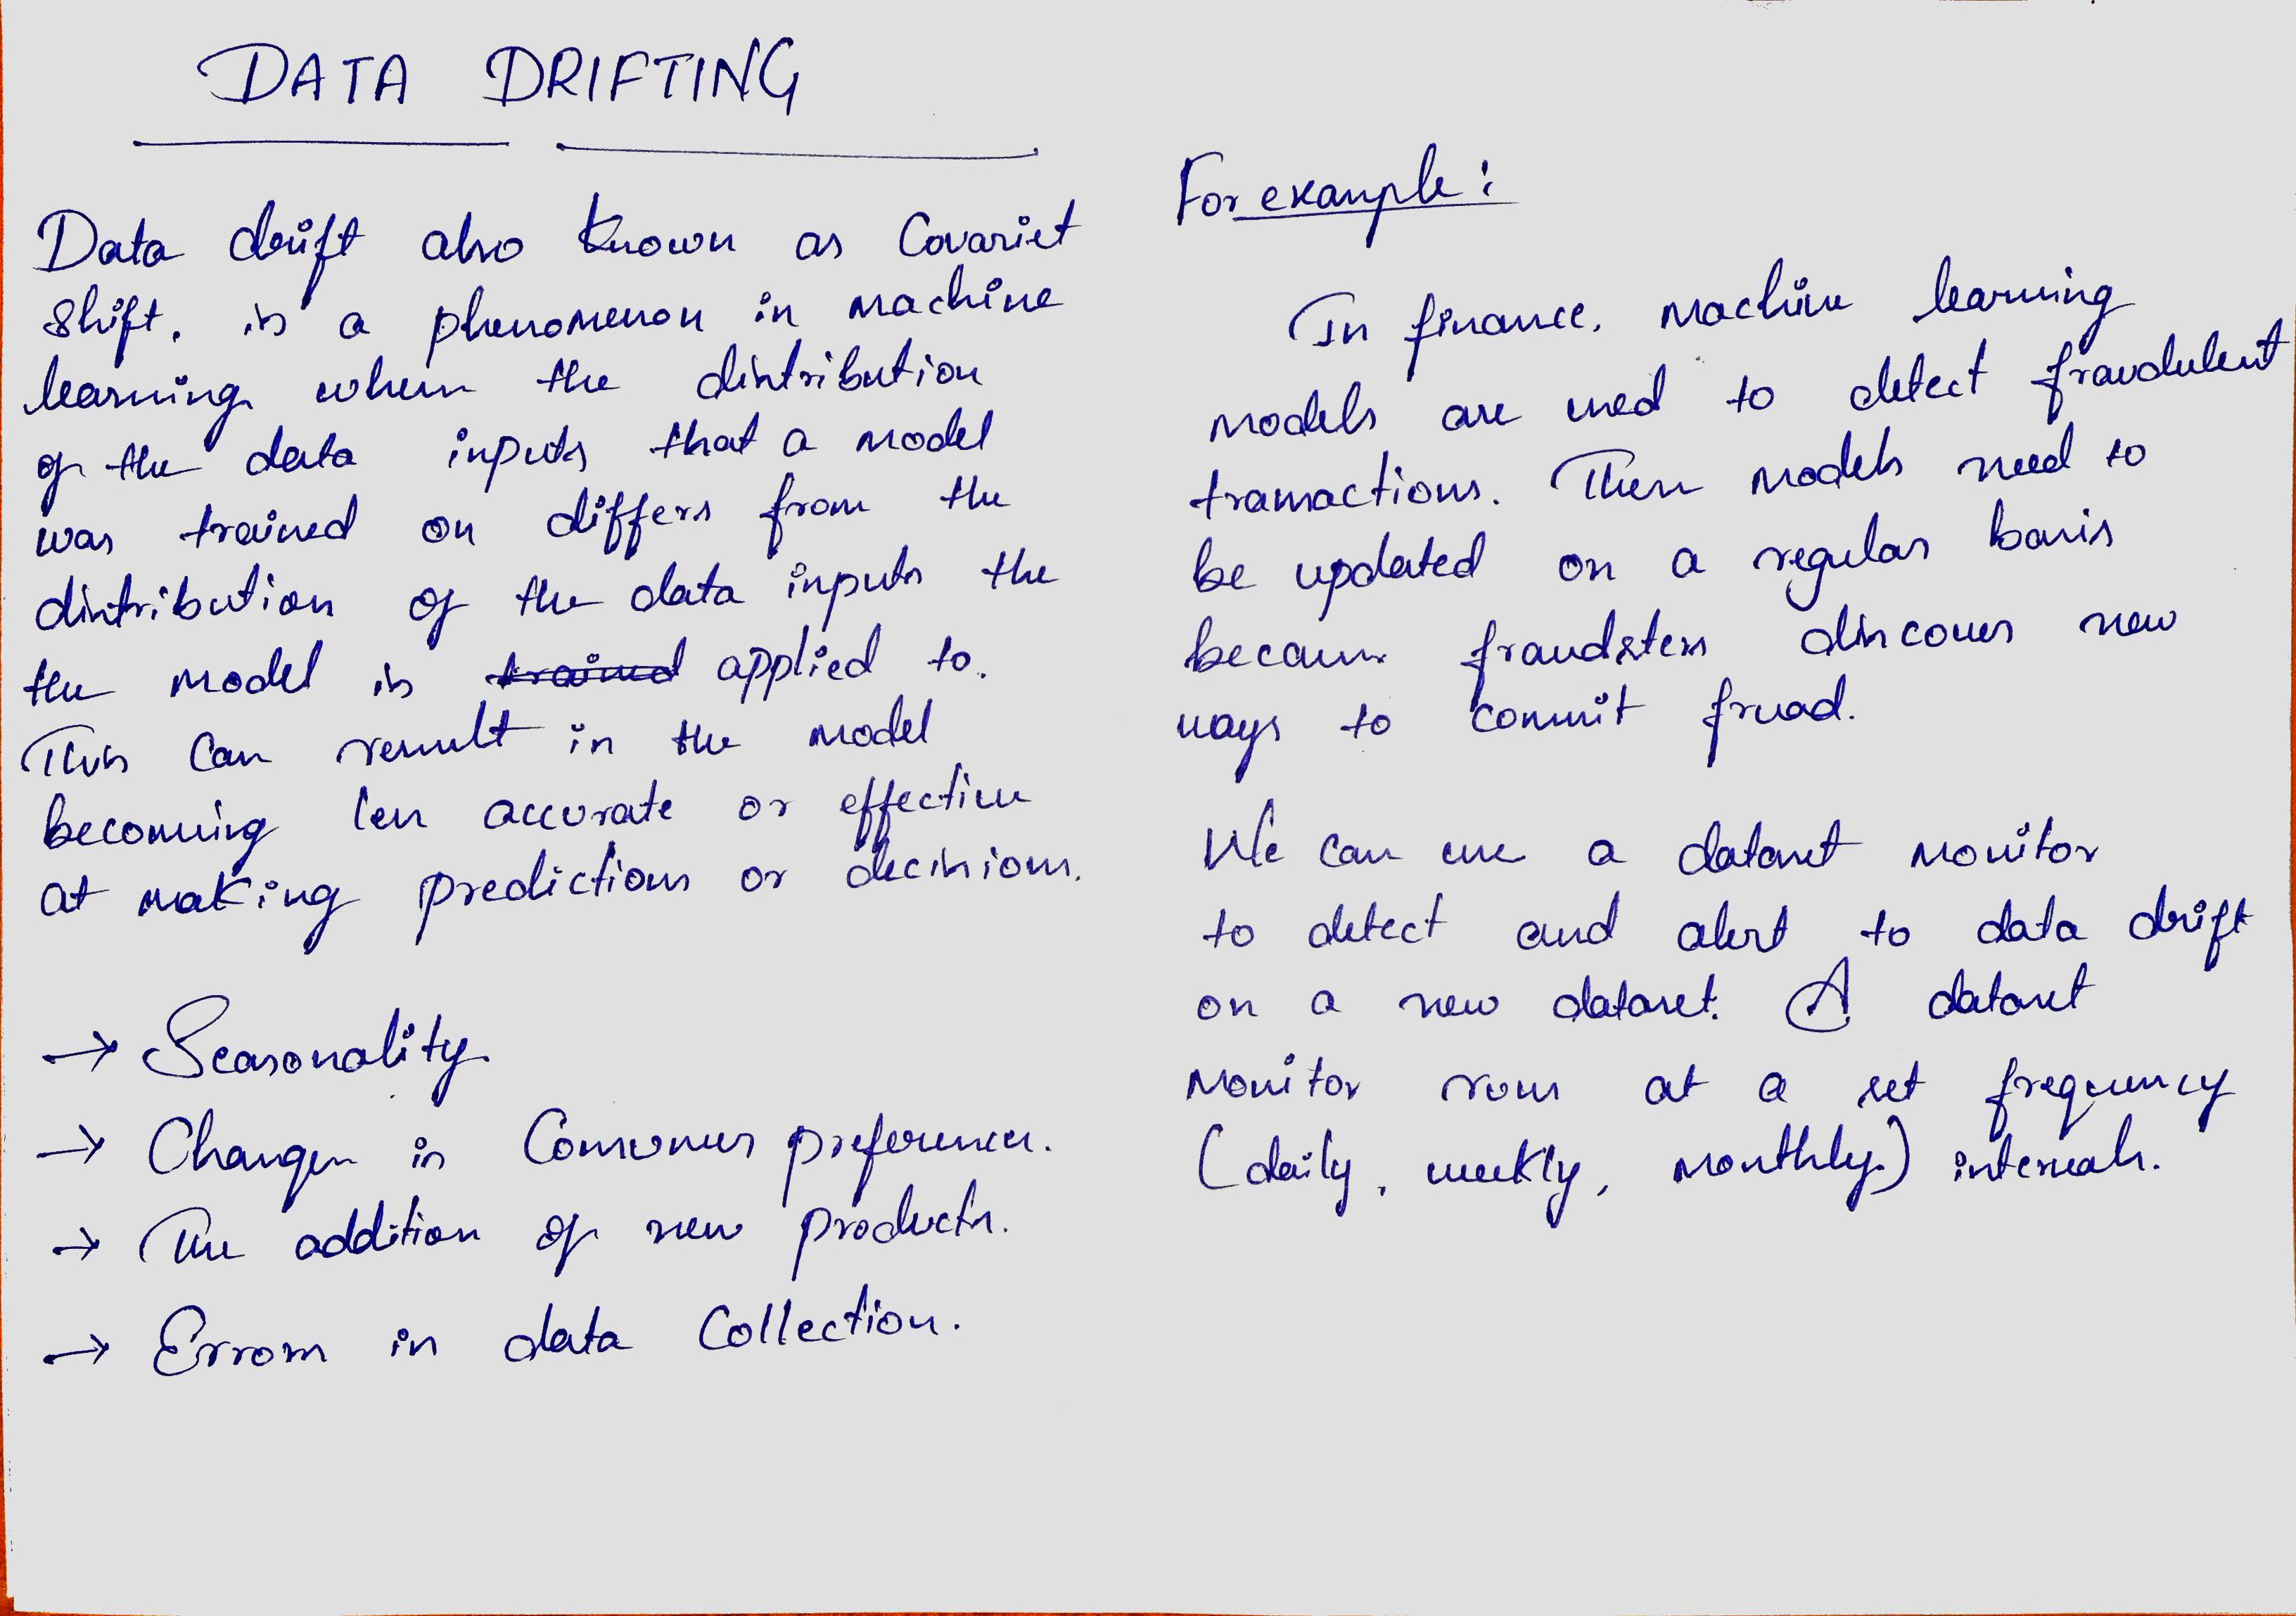 DATA DRIFTING
Data drift also known as Covariet
shift, is a phenomenon in machine
learning where the distribution
of the data inputs that a model
was trained on differs from the
distribution of the data inputs the
the model is trained applied to.
This can result in the model
becoming less accurate or effective
at making predictions or decisions.
→ Seasonality.
→ Changes in Consumer preferences.
→ The addition of new products.
→ Errors in data Collection.
For example:
In finance, machine learning
models are used to detect fraudulent
transactions. These models need to
be updated on a regular basis
because fraudsters discover new
ways to commit fruad.
We can use a dataset monitor
to detect and alert to data drift
on a new dataset. A dataset
monitor runs at a set frequency
(daily, weekly, monthly) intervals.